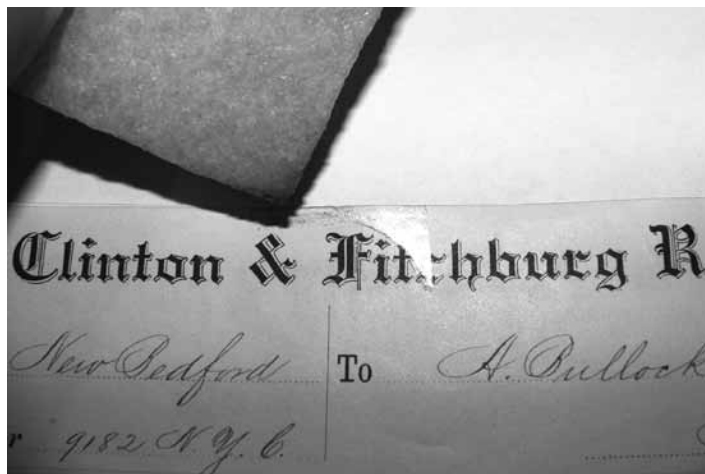 Clinton & Fitchburg R
New Bedford To A. Bullock
r 9182 N. Y. C.